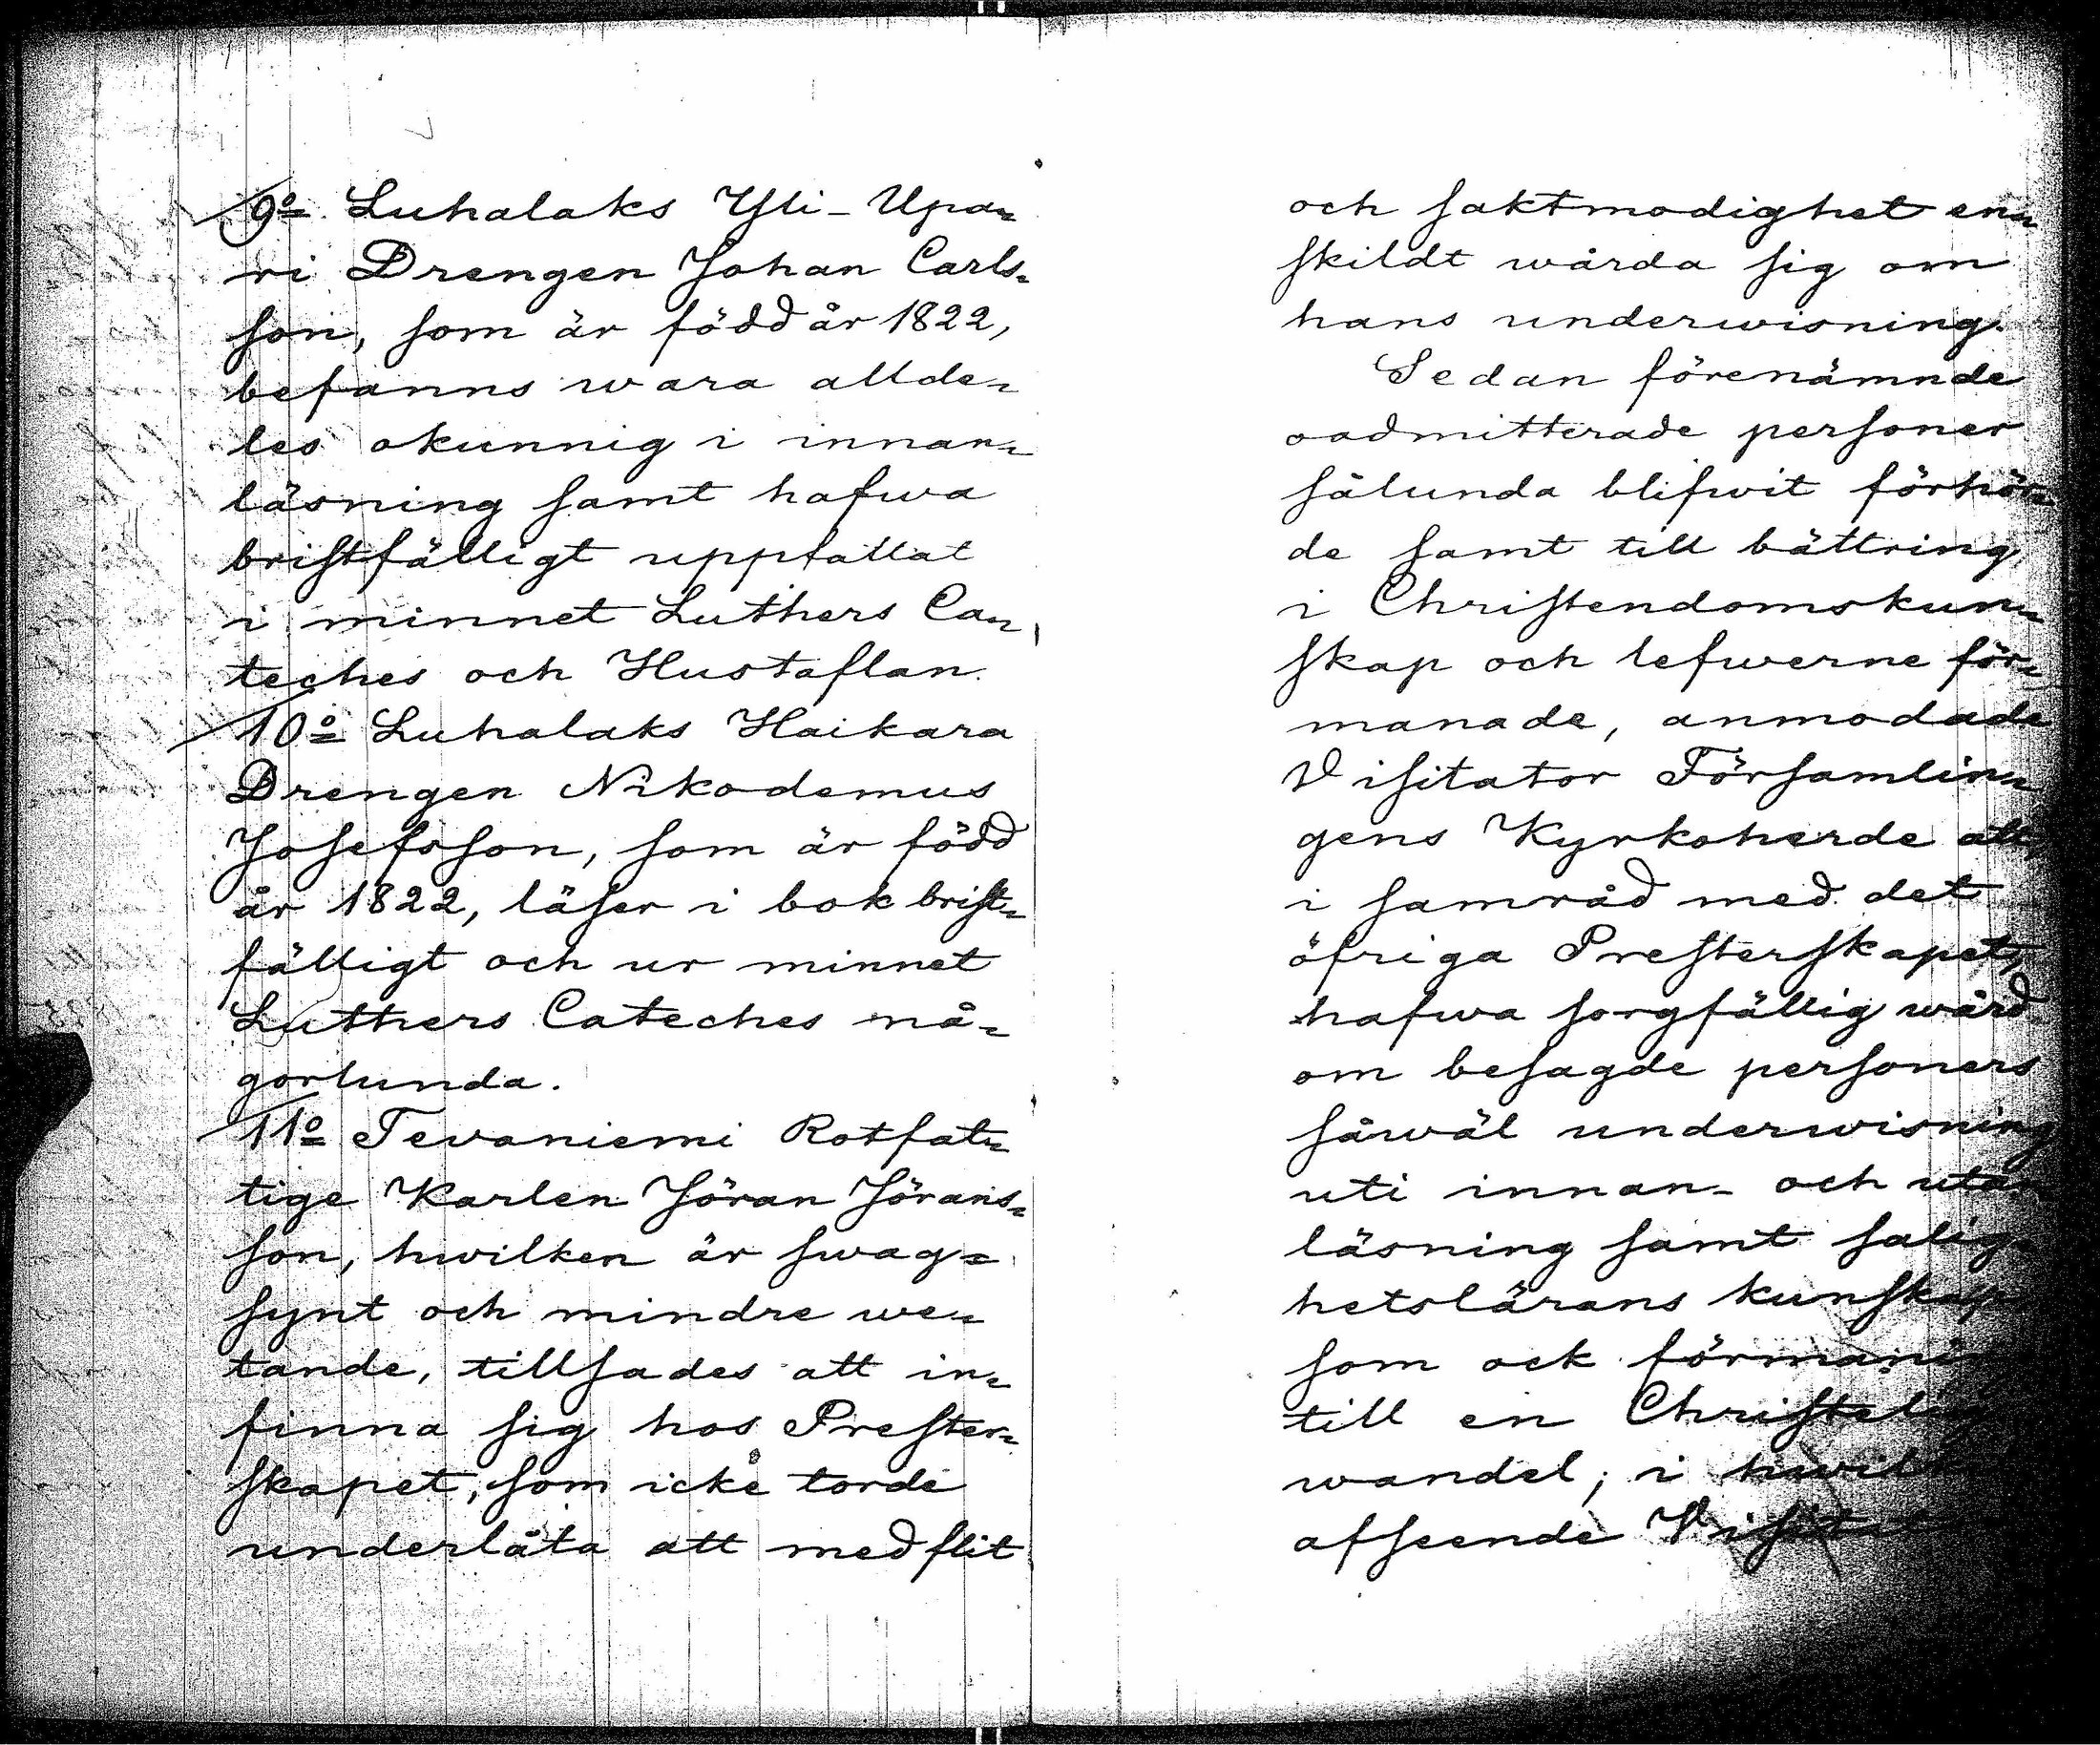 9o Luhalaks Yli-Upa-
ri Drengen Johan Carls-
son, som är född år 1822,
befanns wara allde-
les okunnig i innan-
läsning samt hafwa
bristfälligt uppfattat
i minnet Luthers Ca-
teches och Hustaflan.
10o Luhalaks Haikara
Drengen Nikodemus
Josefsson, som är född
år 1822, läser i bok brist-
fälligt och ur minnet
Luthers Cateches nå-
gorlunda.
11o Tevaniemi Rotfat-
tige Karlen Jöran Jörans-
son, hwilken är swag-
synt och mindre we-
tande, tillsades att in-
finna sig hos Prester-
skapet, som icke torde
underlåta att med flit
och saktmodighet en-
skildt wårda sig om
hans underwisning.
Sedan förenämnde
oadmitterade personer
sålunda blifwit förhör-
de samt till bättring
i Christendomskun-
skap och lefwerne för-
manade, anmodade
Visitator Församlin-
gens Kyrkoherde att,
i samråd med det
öfriga Presterskapet,
hafwa sorgfällig wård
om besagde personers
såwäl underwisning
uti innan- och utan
läsning samt salig-
hetslärans kunskap
som ock
till en
wandel; i
afseende